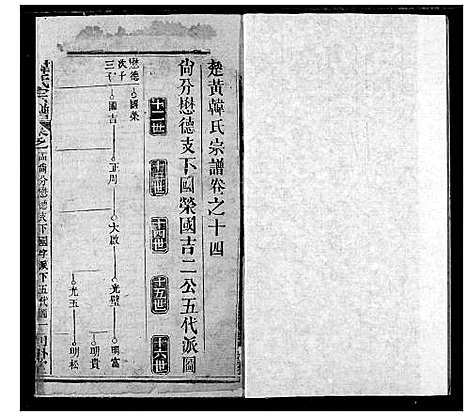 楚黃韓氏宗譜卷之十四
尙分懋德支下國榮國吉二公五代派圖
十二世 十三世 十四世 十五世 十六世
懋德 國榮
次子
三子 國吉 正周 大啟 光璧 明富
明貴
光玉 明松
韓氏宗譜 卷之 尙分懋德支下國字派下五代圖一